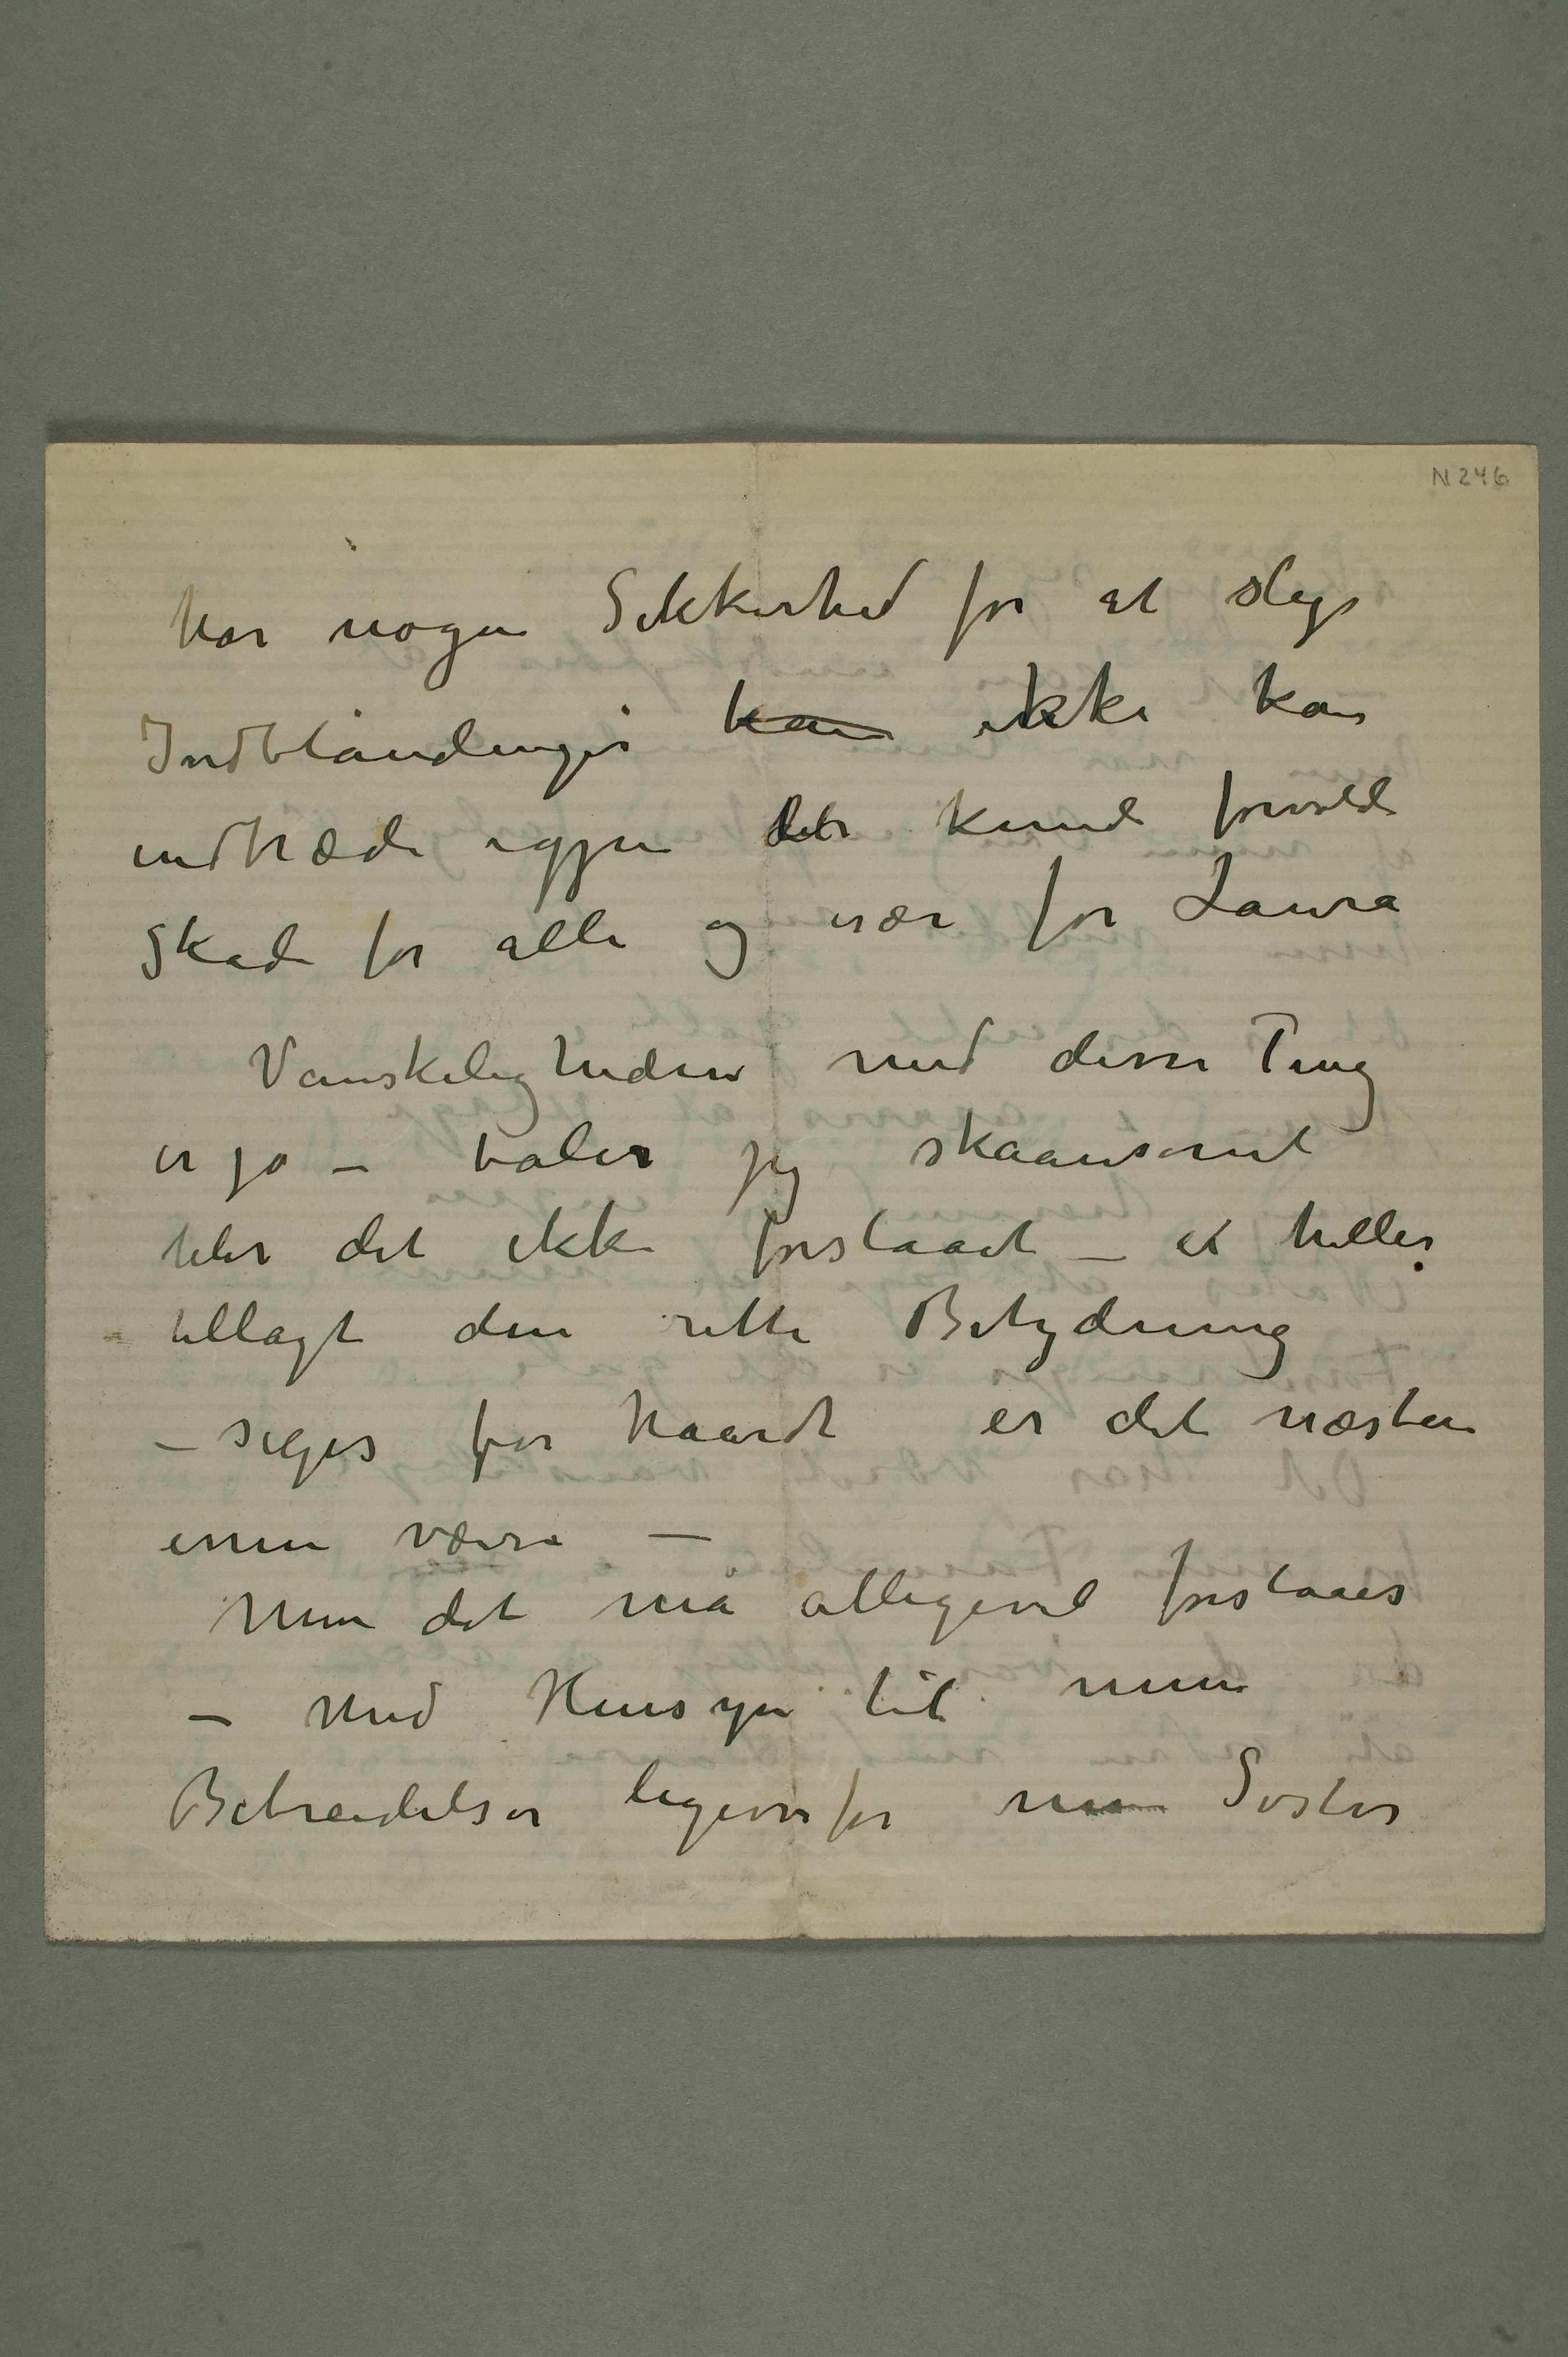 N 246
har nogen Sikkerhed for at slige
Indblandinger kan ikke kan
indtræde igjen det kunde forvolde
Skade for alle og især for Laura
Vanskeligheden med disse Ting
er jo – taler jeg skaansomt
blir det ikke forstaaet – et heller
tillagt den rette Betydning
– siges for haardt er det næsten
ennu værre –
Men det må alligevel forstaaes
– Med Hensyn til mine
Bebreidelser ligeoverfor min Søster